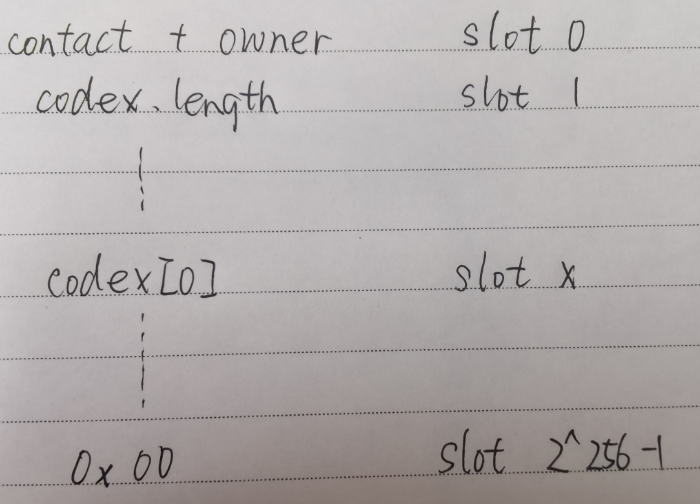 contact + owner slot 0
codex.length slot 1
codex[0] slot x
0x00 slot 2^256-1